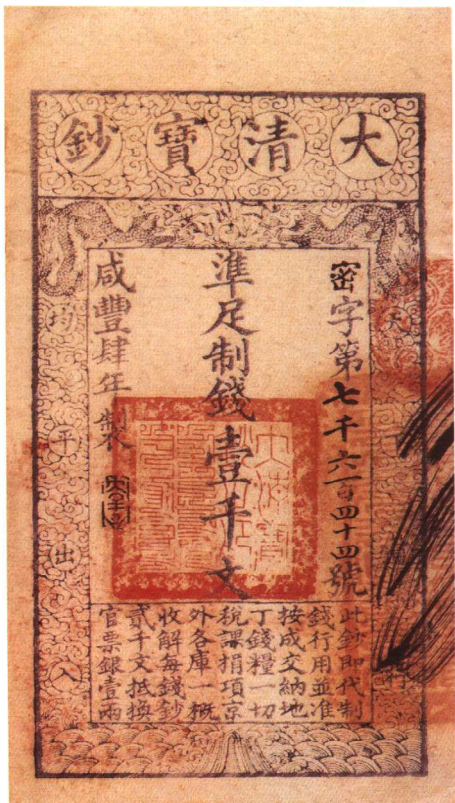 大清寶鈔
密字第七千六百四十四號
準足制錢壹千文
咸豐肆年製
天
行
均平出入
此鈔即代制
錢行用並准
按成交納地
丁錢糧一切
稅課捐項京
外各庫一概
收解每錢鈔
貳千文抵換
官票銀壹兩